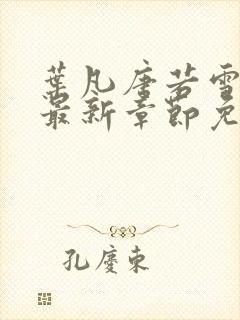 葉凡唐若雪
最新章節免
孔慶東